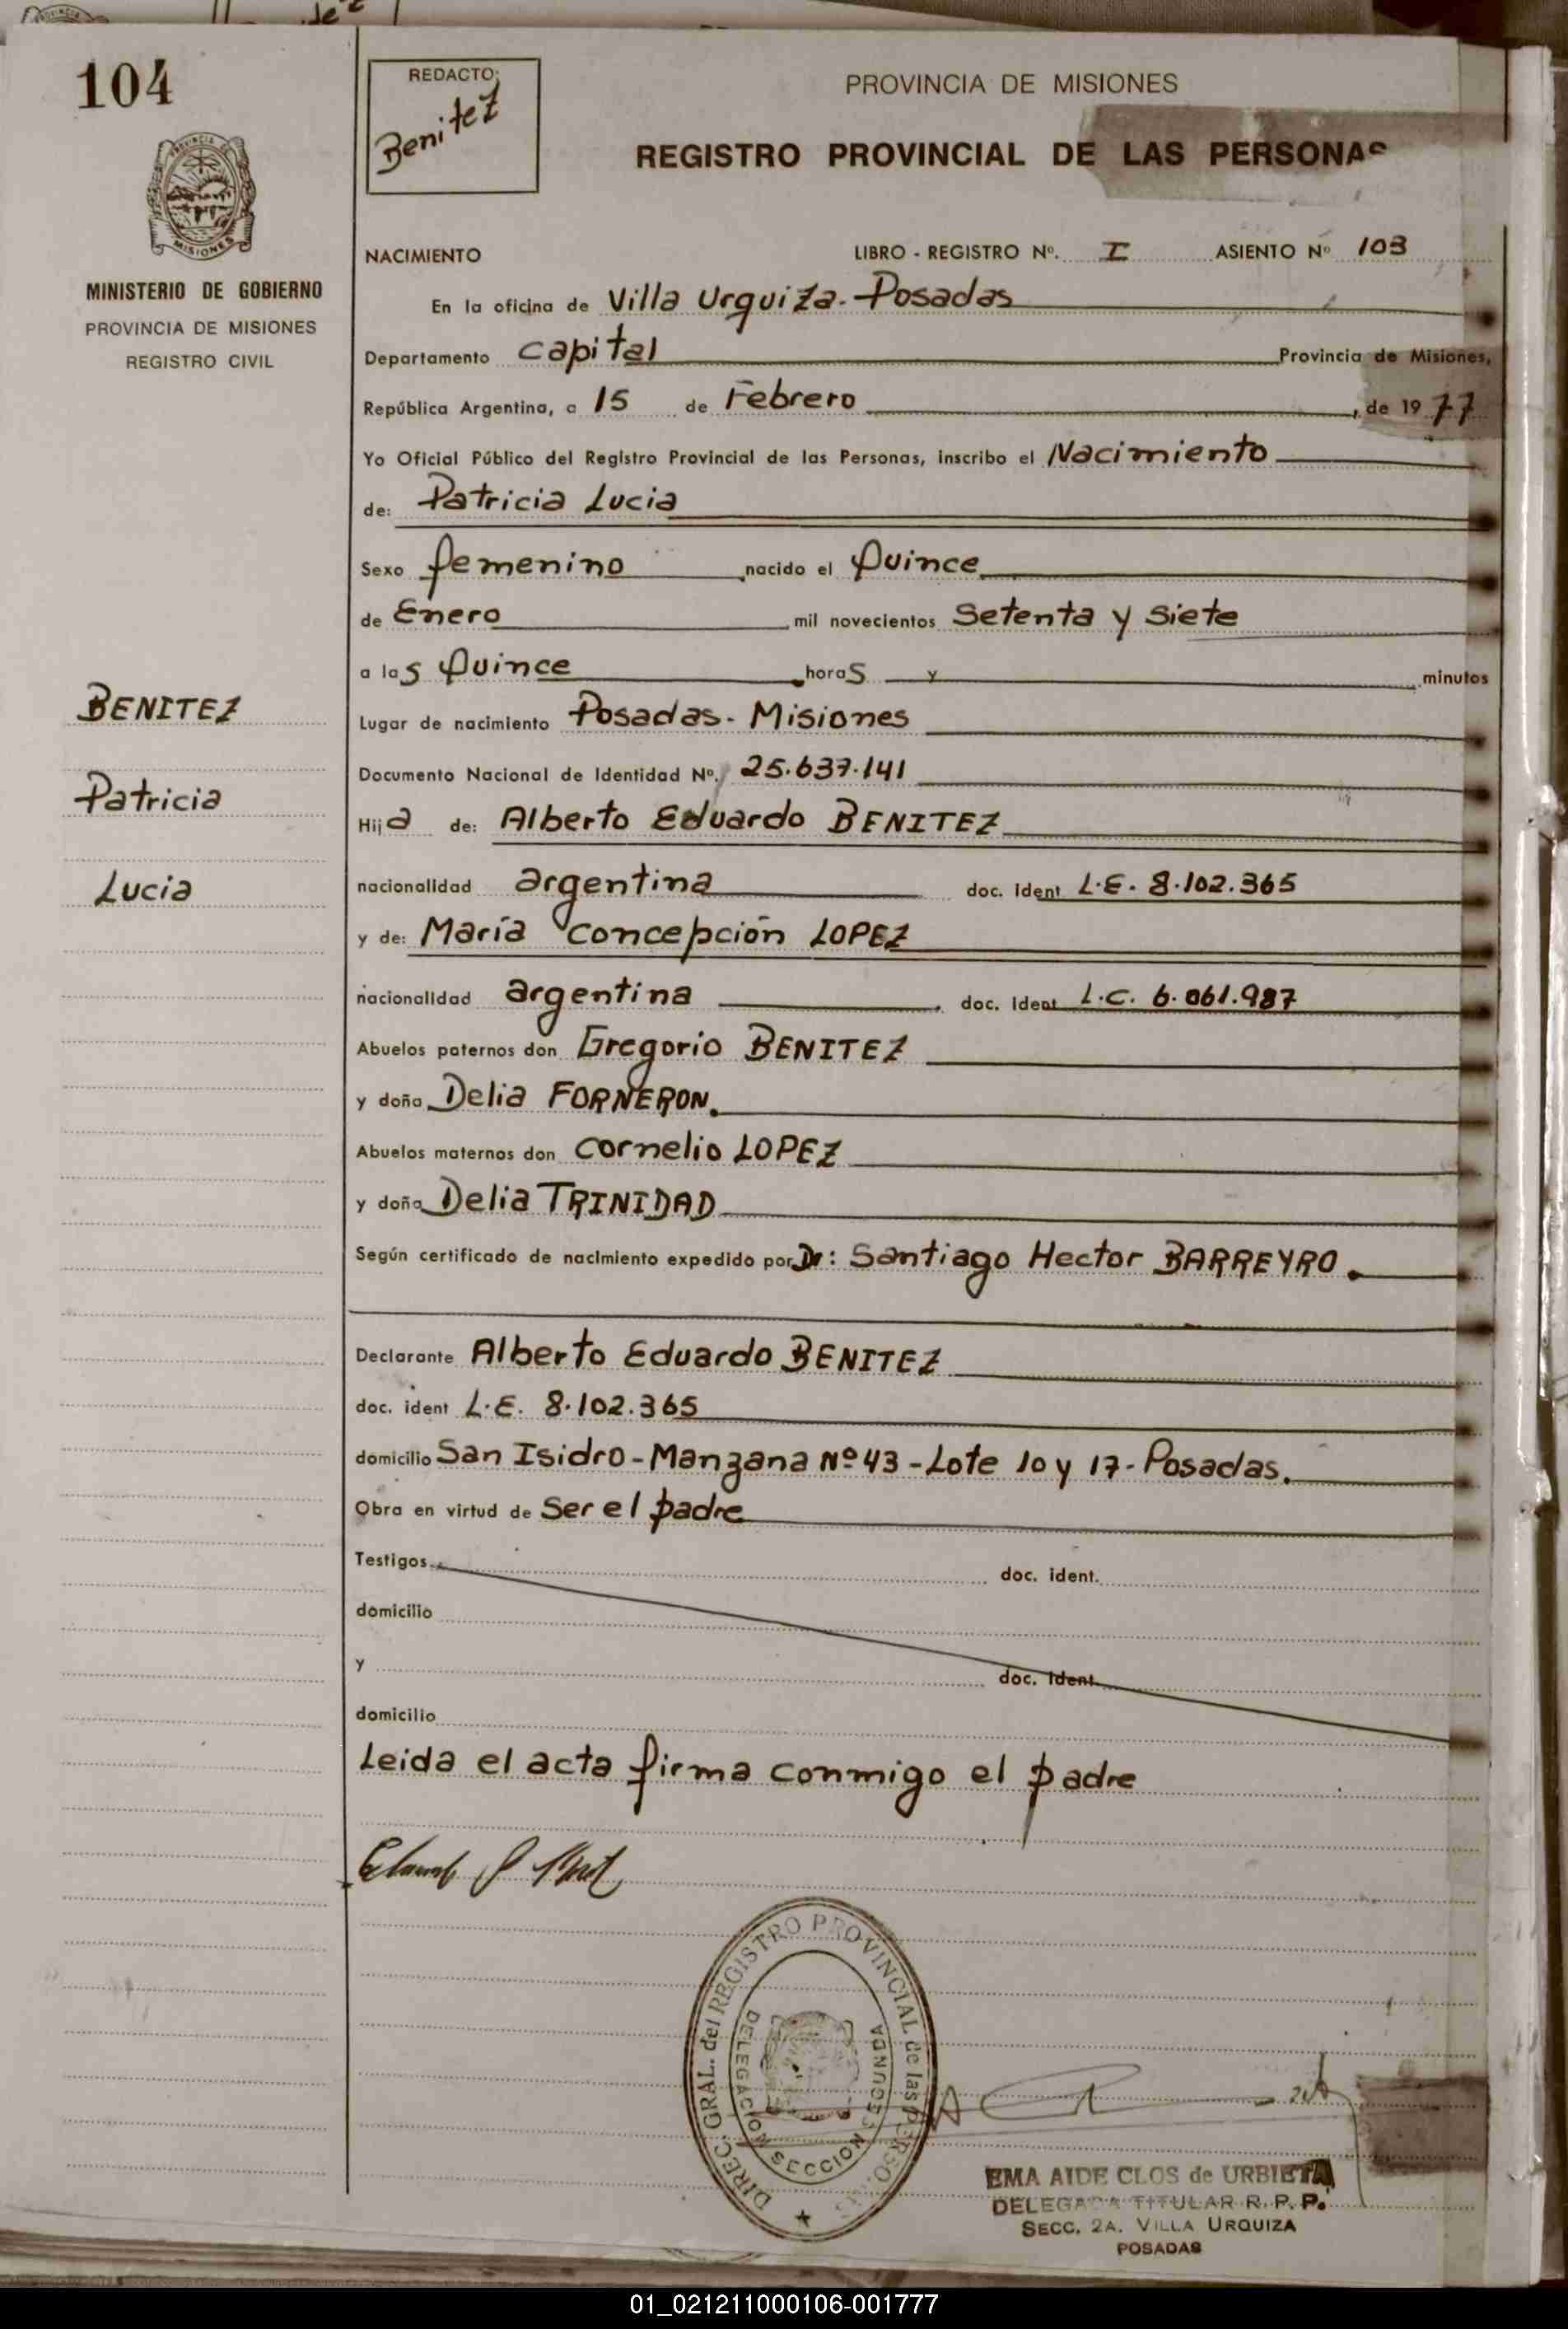 104
REDACTO:
Benitez
PROVINCIA DE MISIONES
REGISTRO PROVINCIAL DE LAS PERSONAS
MISIONES
MINISTERIO DE GOBIERNO
PROVINCIA DE MISIONES
REGISTRO CIVIL
NACIMIENTO LIBRO - REGISTRO Nº. I ASIENTO Nº 103
En la oficina de Villa Urquiza - Posadas
Departamento Capital Provincia de Misiones,
República Argentina, a 15 de Febrero, de 1977
Yo Oficial Público del Registro Provincial de las Personas, inscribo el Nacimiento
de: Patricia Lucia
Sexo femenino nacido el Quince
de Enero mil novecientos Setenta y Siete
a las Quince horas y minutos
Lugar de nacimiento Posadas - Misiones
Documento Nacional de Identidad Nº. 25.637.141
Hija de: Alberto Eduardo BENITEZ
nacionalidad argentina doc. ident L.E. 8.102.365
y de: María Concepción LOPEZ
nacionalidad argentina, doc. ident L.C. 6.061.987
Abuelos paternos don Gregorio BENITEZ
y doña Delia FORNERON.
Abuelos maternos don Cornelio LOPEZ
y doña Delia TRINIDAD
Según certificado de nacimiento expedido por Dr: Santiago Hector BARREYRO.
Declarante Alberto Eduardo BENITEZ
doc. ident L.E. 8.102.365
domicilio San Isidro - Manzana Nº 43 - Lote 10 y 17 - Posadas.
Obra en virtud de Ser el padre
Testigos doc. ident.
domicilio
y doc. ident.
domicilio
Leida el acta firma conmigo el padre
BENITEZ
Patricia
Lucia
DIREC. GRAL. del REGISTRO PROVINCIAL de las PERSONAS
DELEGACION SECCION SEGUNDA
EMA AIDE CLOS de URBIETA
DELEGADA TITULAR R. P. P.
SECC. 2A. VILLA URQUIZA
POSADAS
01_021211000106-001777